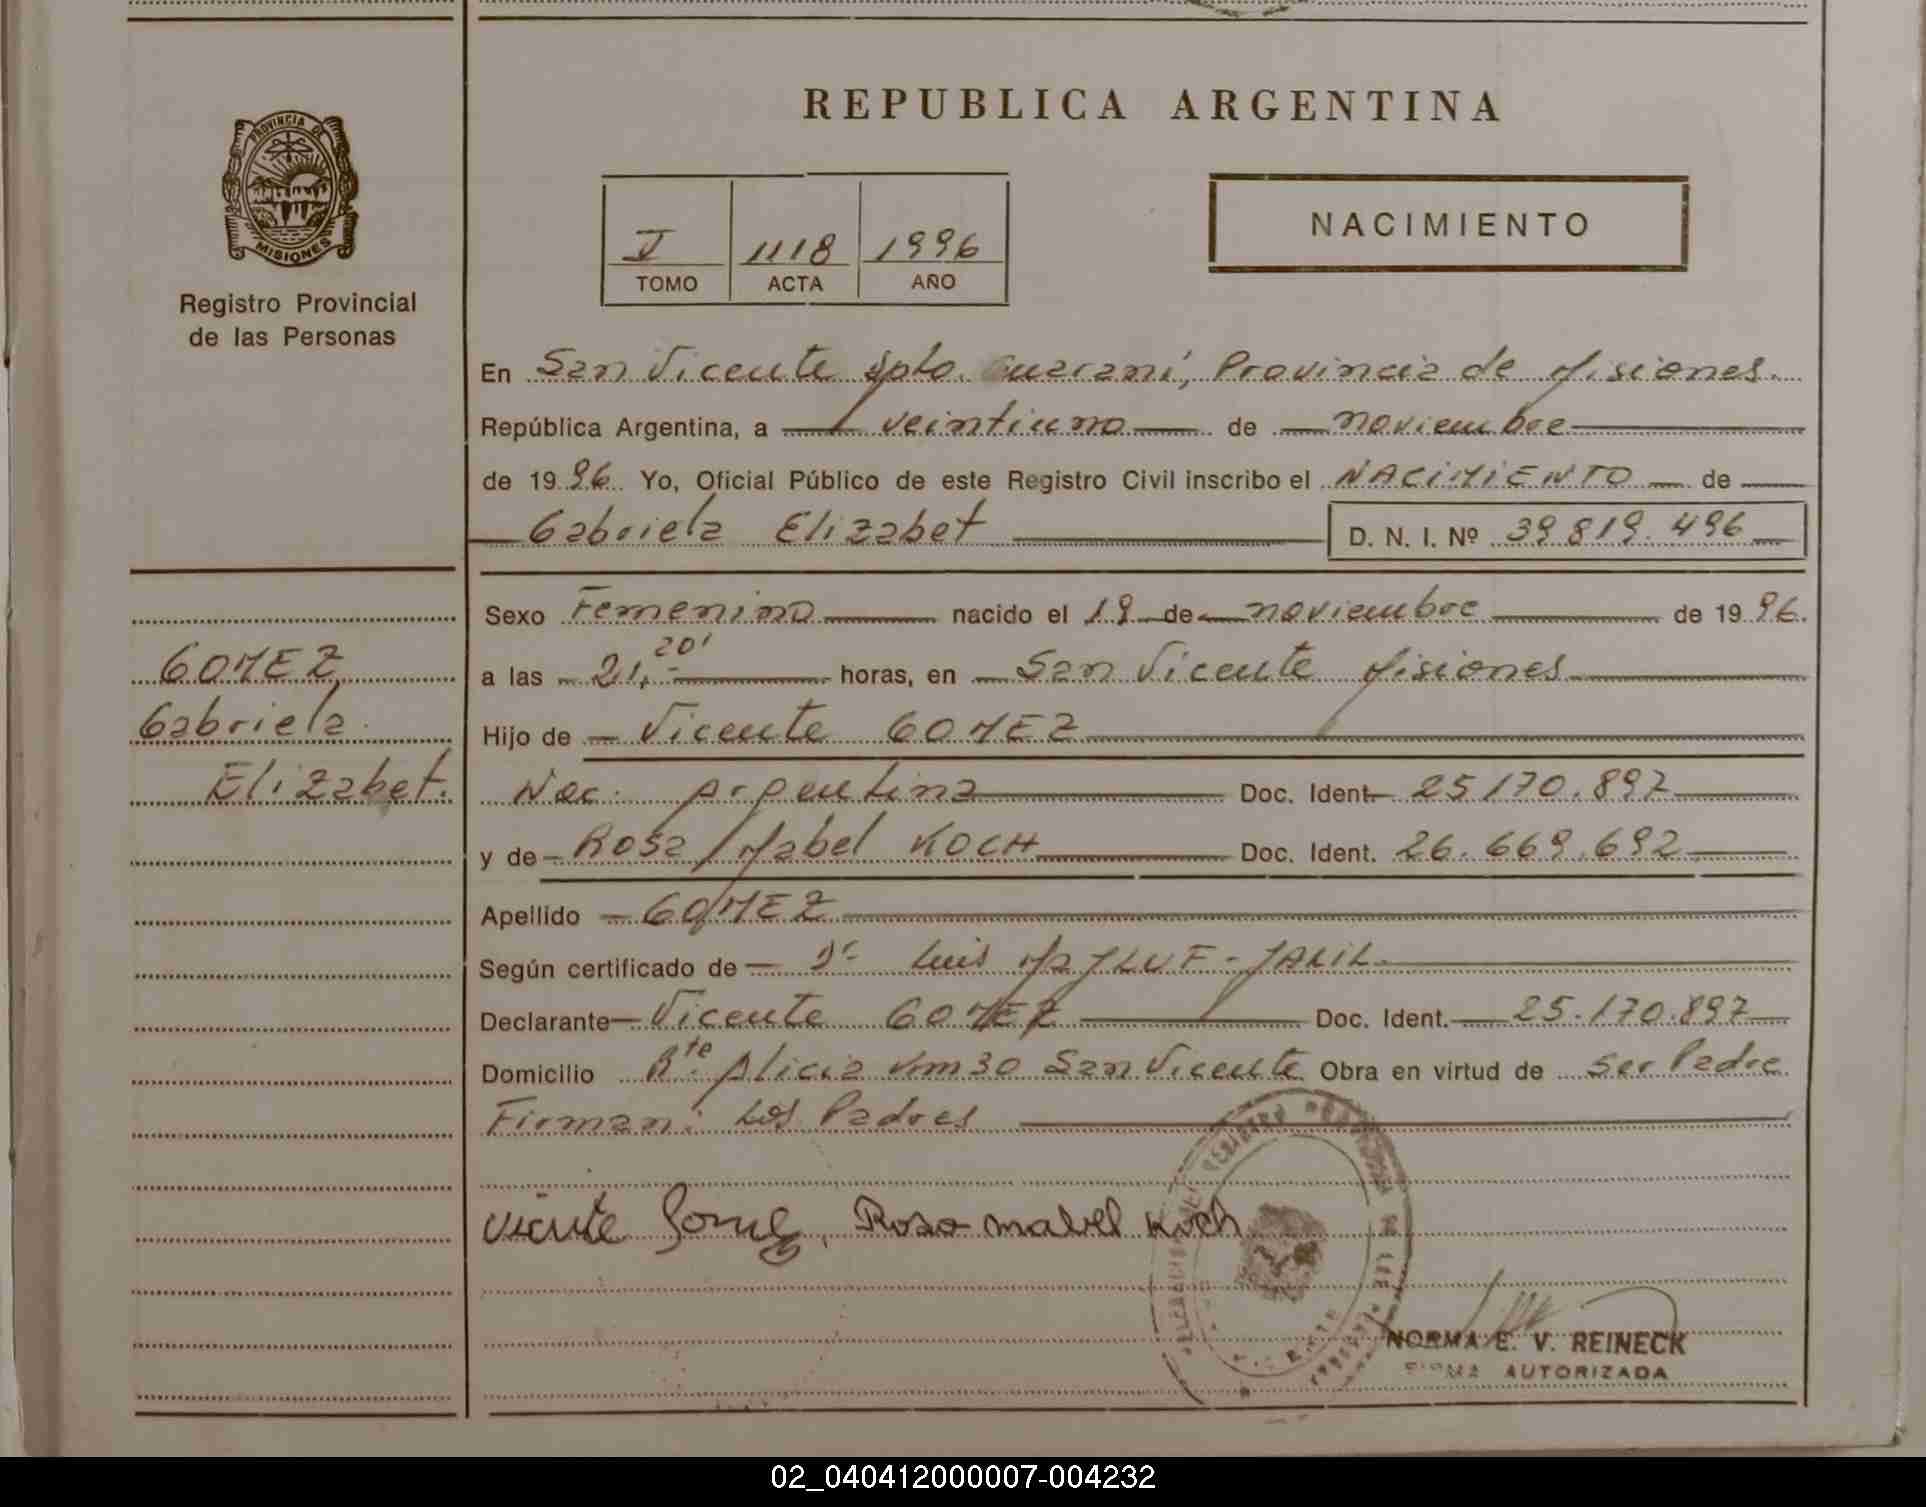 REPUBLICA ARGENTINA
PROVINCIA DE
MISIONES
Registro Provincial
de las Personas
V 1118 1996
TOMO ACTA AÑO
NACIMIENTO
En San Vicente Dpto. Guaraní, Provincia de Misiones.
República Argentina, a veintiuno de noviembre
de 1996 Yo, Oficial Público de este Registro Civil inscribo el NACIMIENTO de
Gabriela Elizabet D. N. I. Nº 39.819.496
GOMEZ
Gabriela
Elizabet.
Sexo Femenino nacido el 19 de noviembre de 1996.
a las 21,20' horas, en San Vicente Misiones
Hijo de Vicente GOMEZ
Nac. Argentina Doc. Ident. 25.170.897
y de Rosa Mabel KOCH Doc. Ident. 26.669.692
Apellido GOMEZ
Según certificado de Dr Luis MAJLUF-JALIL.
Declarante Vicente GOMEZ Doc. Ident. 25.170.897
Domicilio Rte. Alicia Km 30 San Vicente Obra en virtud de ser Padre
Firman: Los Padres
Vicente Gomez, Rosa mabel Koch
NORMA E. V. REINECK
FIRMA AUTORIZADA
02_040412000007-004232